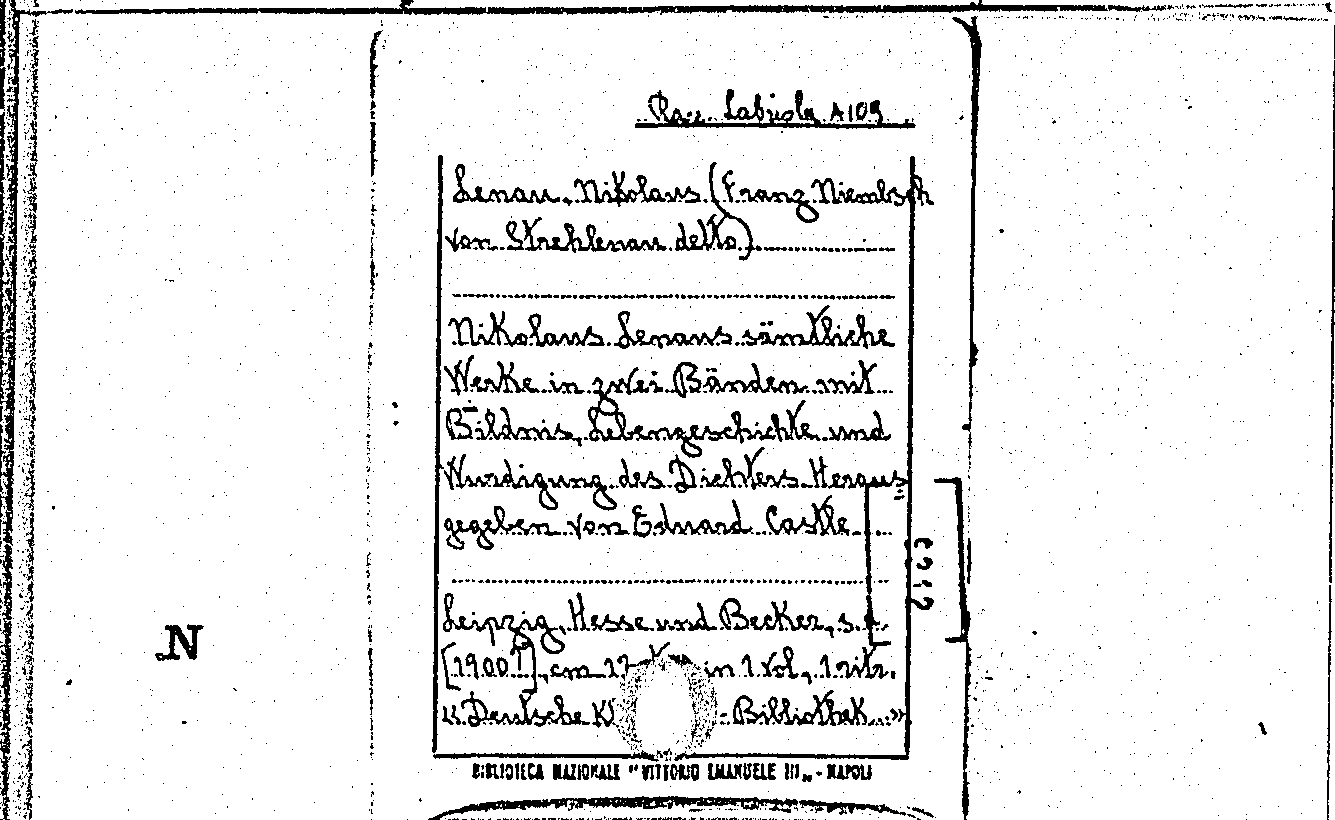 Rac. Labriola A 109
Lenau, Nikolaus (Franz Niembsch
von Strehlenau detto)
Nikolaus Lenaus sämtliche
Werke in zwei Bänden mit
Bildnis, Lebengeschichte und
Wurdigung des Dichters Heraus=
gegeben von Eduard Castle
Leipzig, Hesse und Becker, s.a.
[1900?], cm 17 in 1 vol., 1 ritr.
«Deutsche Kl - Bibliothek »
BIBLIOTECA NAZIONALE "VITTORIO EMANUELE III„ - NAPOLI
N